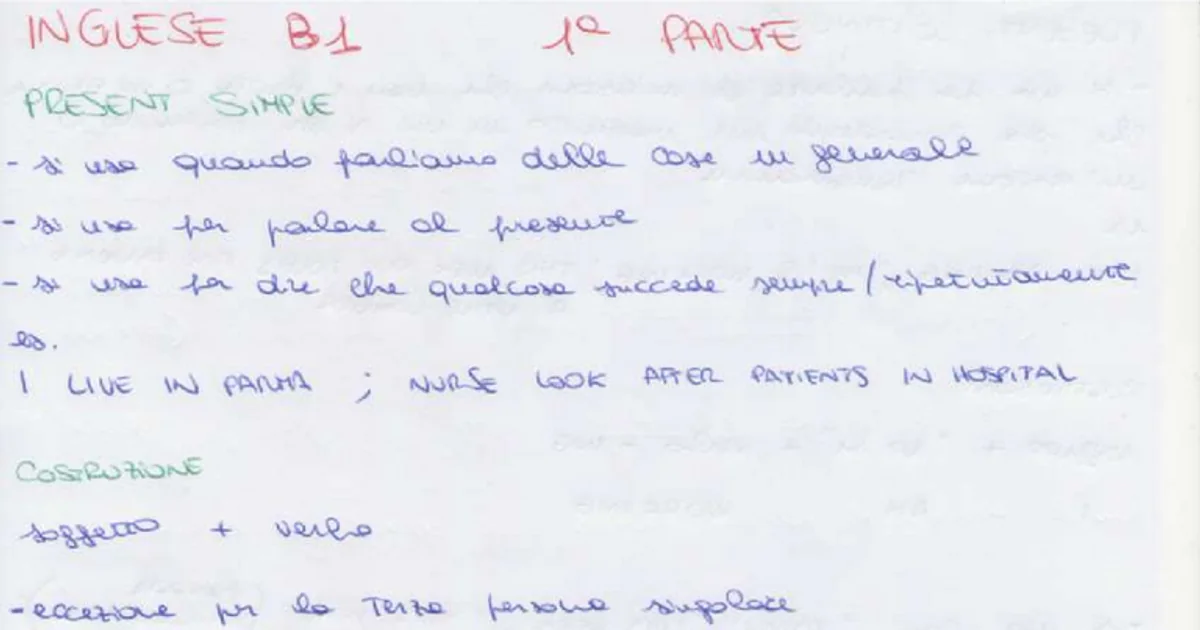 INGLESE B1 1ª PARTE
PRESENT SIMPLE
- si usa quando parliamo delle cose in generale
- si usa per parlare al presente
- si usa per dire che qualcosa succede sempre/ripetutamente
es.
I LIVE IN PARMA ; NURSE LOOK AFTER PATIENTS IN HOSPITAL
COSTRUZIONE
soggetto + verbo
- eccezione per la terza persona singolare